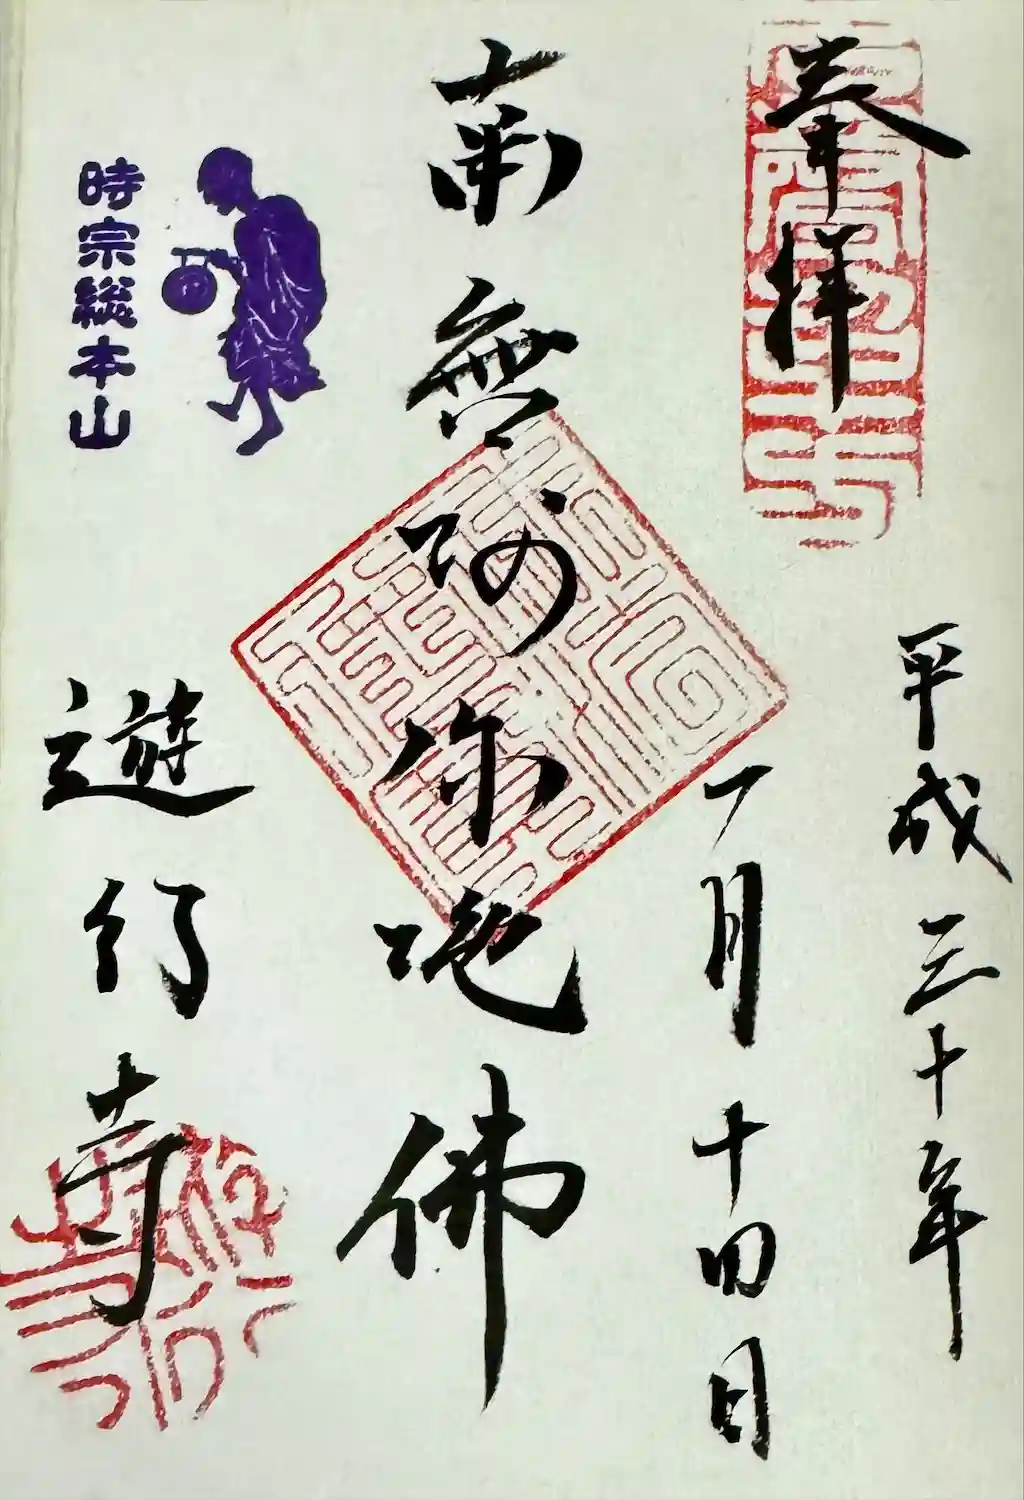 奉拝
平成三十年
一月十四日
南無阿弥陀佛
遊行寺
時宗総本山